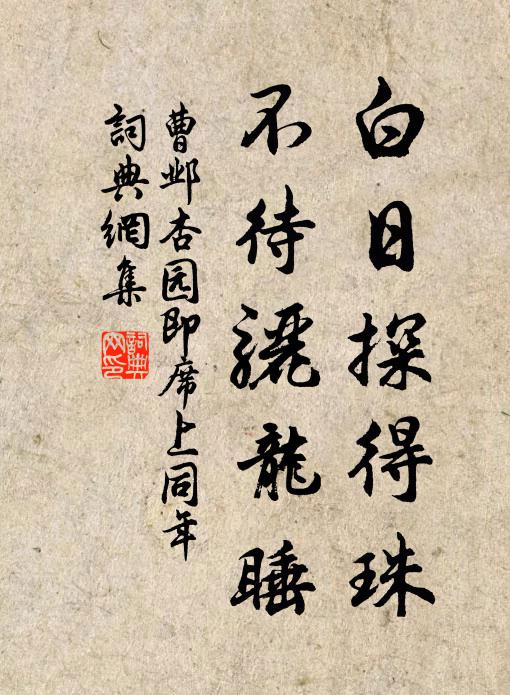 白日探得珠
不待驪龍睡
曹邺杏园即席上同年
詞典網集
詞典網印